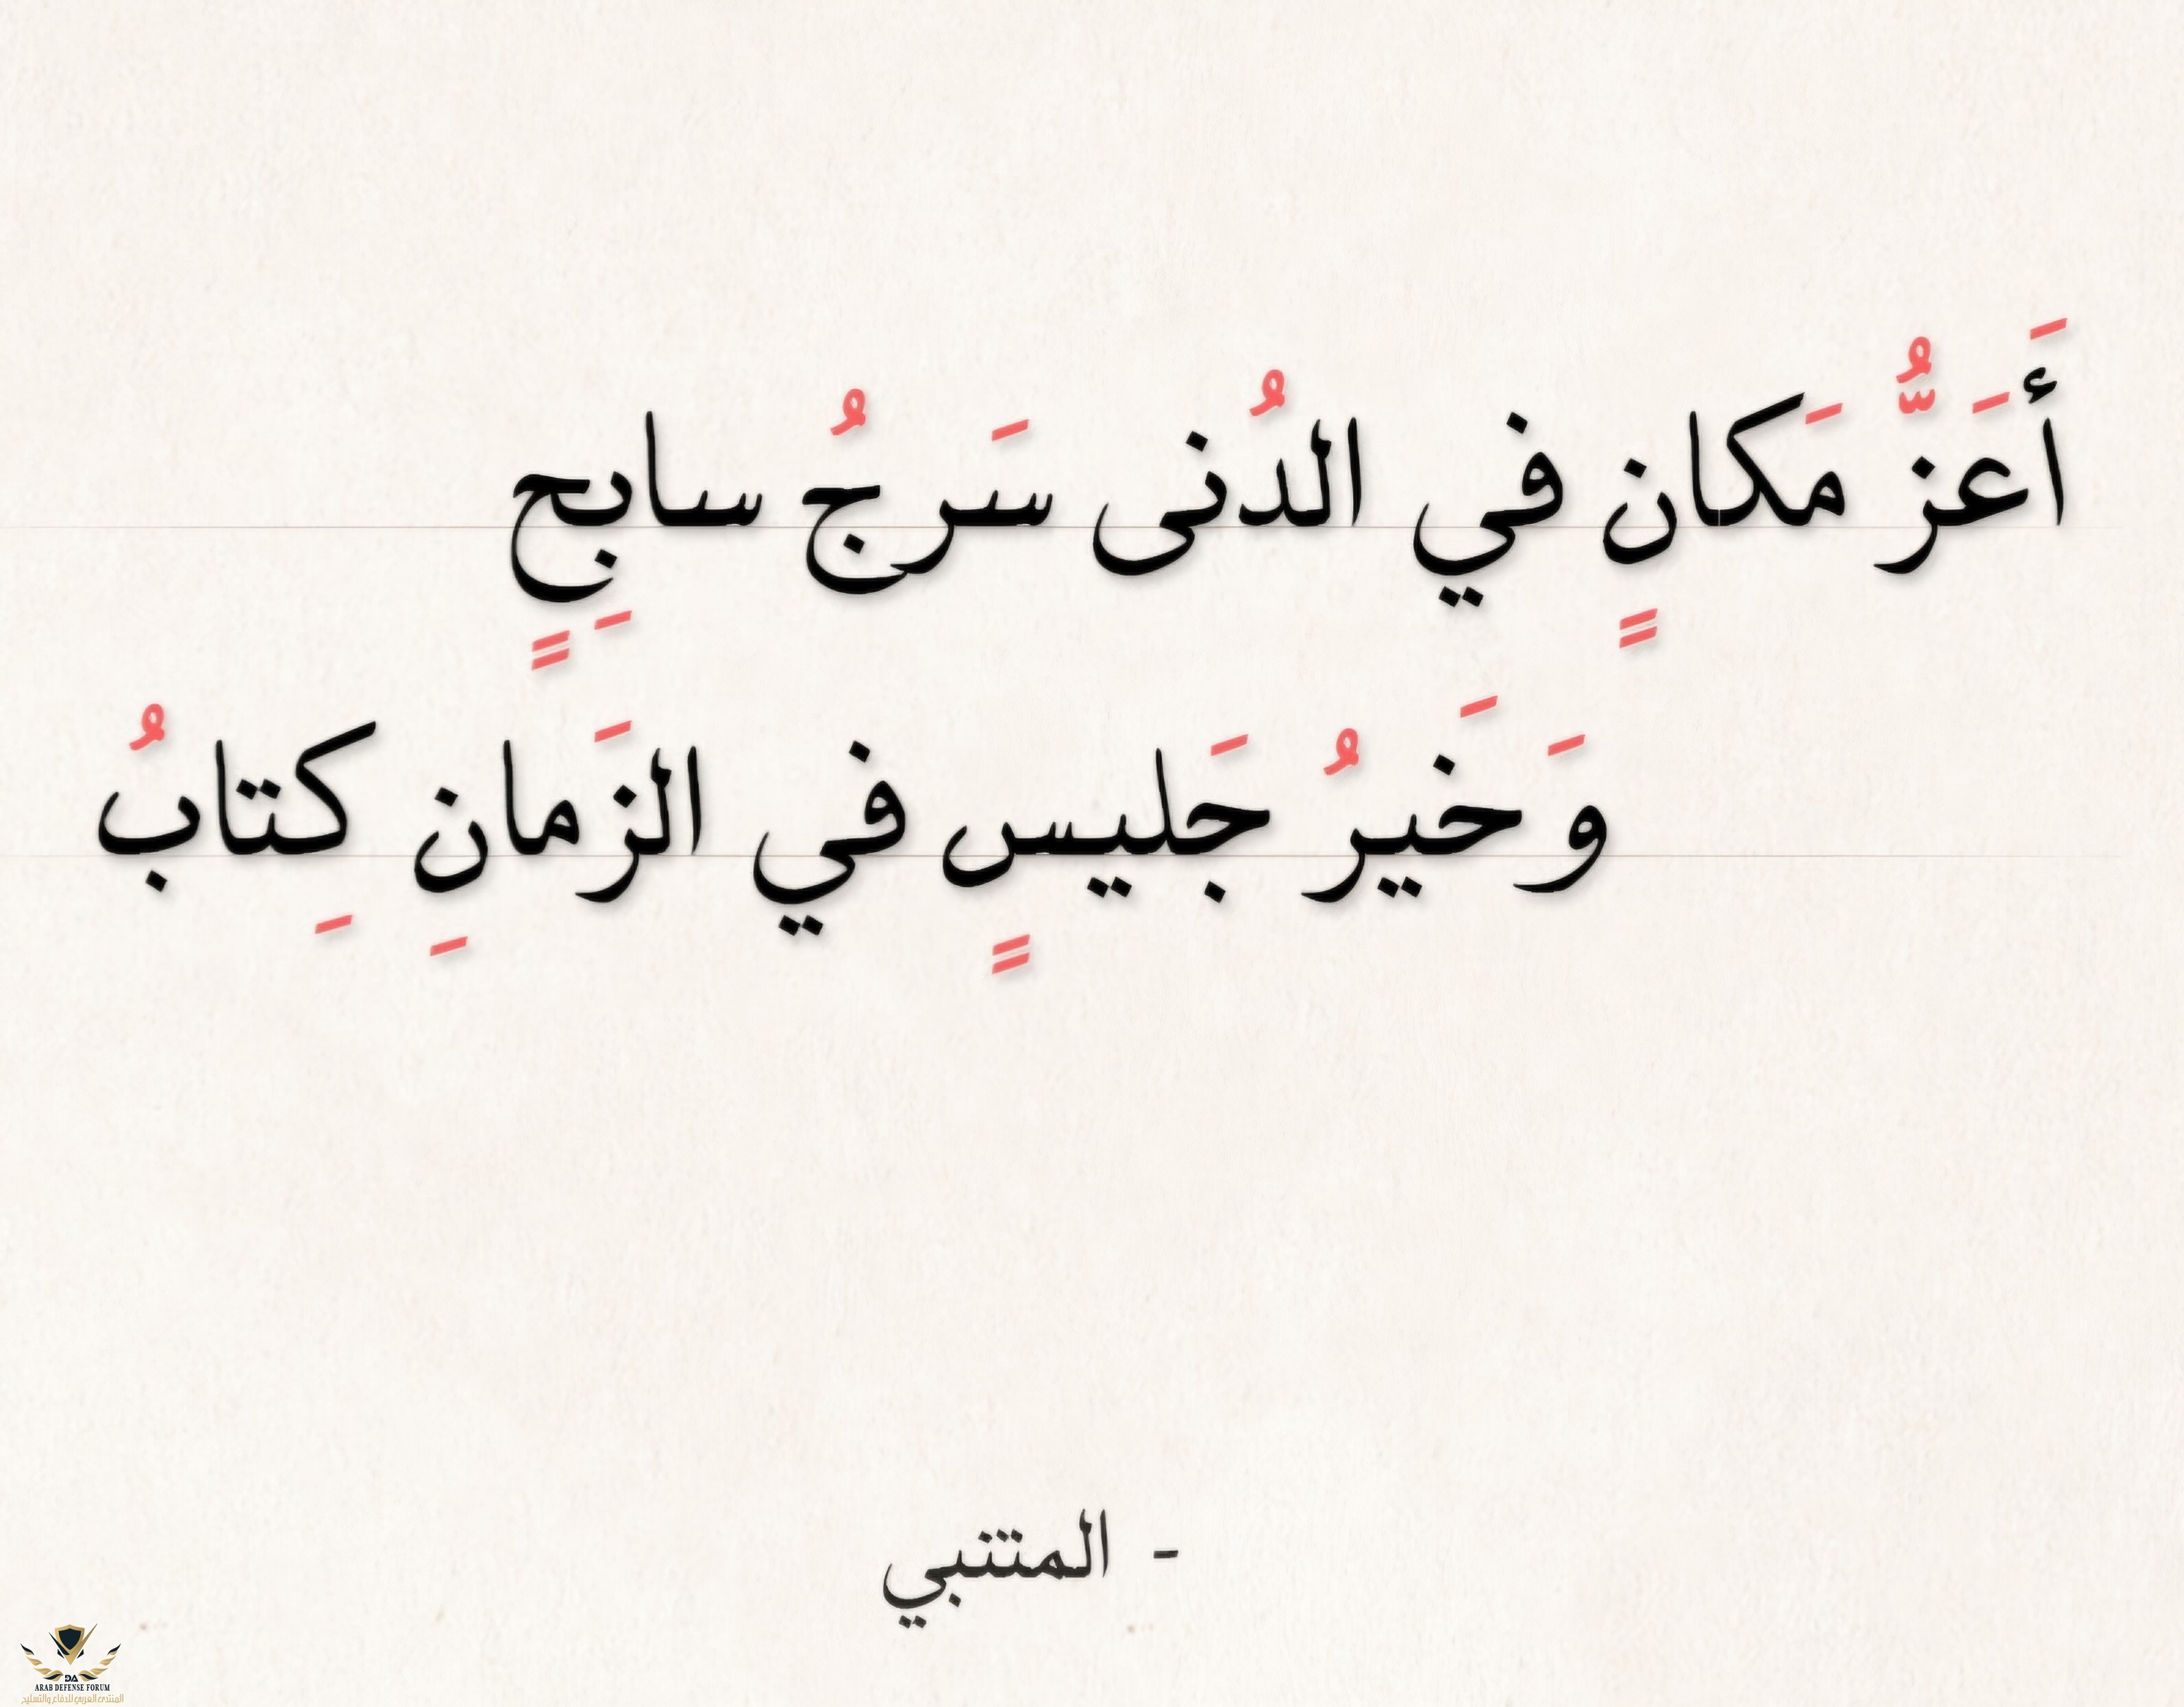 أَعَزُّ مَكانٍ في الدُنى سَرجُ سابِحٍ
وَخَيرُ جَليسٍ في الزَمانِ كِتابُ
- المتنبي
DA
ARAB DEFENSE FORUM
المنتدى العربي للدفاع والتسليح